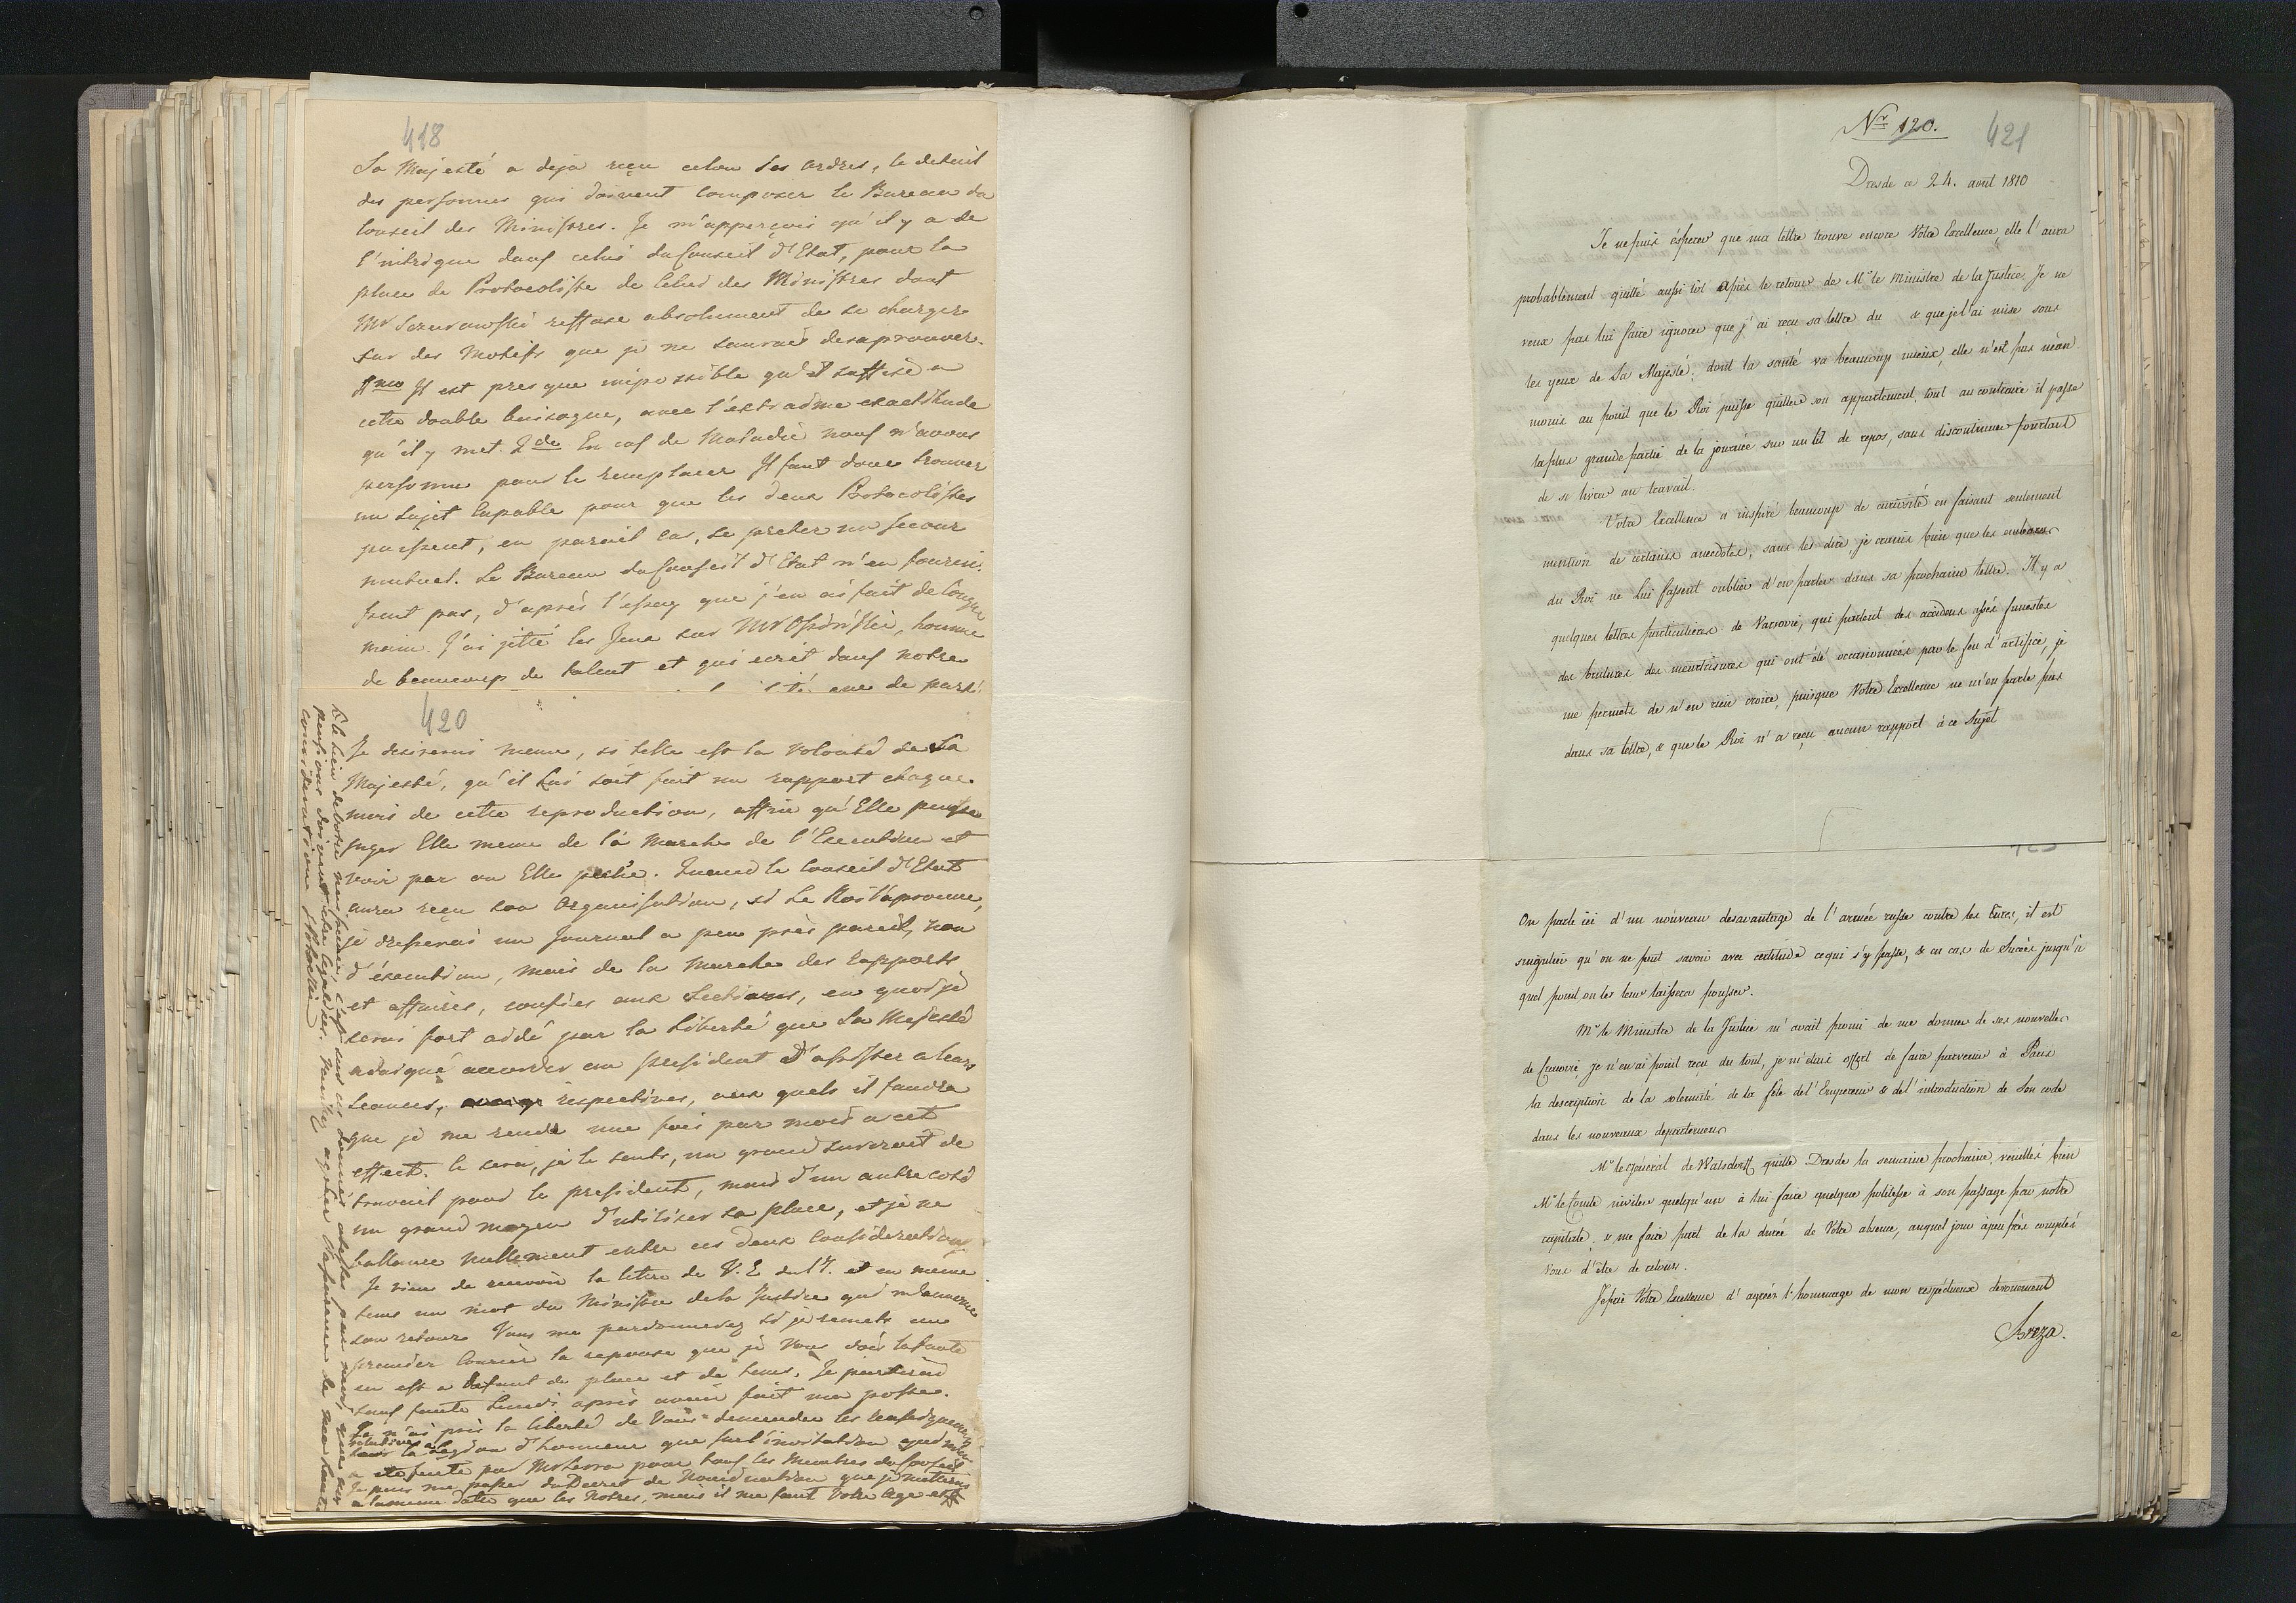 418
Sa Majesté a deja reçu selon ses ordres, le detail
des personnes qui doivent composer le Bureau du
Conseil des Ministres. Je m'apperçois qu'il y a de
l'intrigue dans celui du Conseil d'Etat, pour la
place de Protocoliste de celui des Ministres dont
Mr reffuse absolument de se charger
sur des Motifs que je ne saurais desaprouver.
1mo Il est presque impossible qu'il suffise a
cette double besoigne, avec l'extradme exactitude
qu'il y met. 2de En cas de Maladie nous n'avons
personne pour le remplacer Il faut donc trouver
un Sujet Capable pour que les deux Protocolistes
puissent, en pareil cas, se preter un secour
mutuel. Le Bureau du Conseil d'Etat n'en fournis
sent pas, d'aprés l'essay que j'en ai fait de longue
main. J'ai jetté les yeux sur Mr Osinski, homme
de beaucoup de talent et qui ecrit dans notre
420
Je desirerais meme, si telle est la Volonté de Sa
Majesté, qu'il Lui soit fait un rapport chaque
mois de cette reproduction, affin qu'Elle puisse
juger Elle meme de la Marche de l'Execution et
voir par ou Elle peche. Quand le Conseil d'Etat
aura reçu son Organisation, si Le Roi l'aprouve,
je dresserai un Journal a peu près pareil, non
d'éxecution, mais de la Marche des rapports
et affaires, confiées aux Sections, en quoi je
serai fort aidé par la Liberté que Sa Majesté
a daigné accorder au president d'assister a leurs
seances, respectives, aux quels il faudra
que je me rende une fois par mois a cet
effect. Ce sera, je le sents, un grand surcroit de
travail pour le president, mais d'un autre coté
un grand moyen d'utiliser sa place, et je ne
ballance nullement entre ces deux Considerations
Je vien de recevoir la lettre de V. E. du 17. et en meme
tems un mot du Ministre de la Justice qui m'annonce
son retour. Vous me pardonnerez si je remets au
premier Courier la reponse que je Vous dois la faute
en est a defaut de place et de tems. Je partirai
sans faute Lundi après avoir fait ma poste.
Je n'ai pris la liberté de Vous demander les renseignemens
relatives a
la Legion d'honneur que sur l'invitation qui m'en
a ete faite par Mr Serra pour tous les Membres du Conseil
Je puis me passer du Decret de Nomination que je mettrai
a la meme date que les Notres, mais il me faut Votre age et
pensions doivent etre Veuillez agréer l'assurance de ma haute
consideration
Nr 120.
421
Dresde ce 24. avril 1810
Je ne puis ésperer que ma lettre trouve encore Votre Excellence, elle l'aura
probablement quitté aussitôt après le retour de Mr le Ministre de la Justice. Je ne
veux pas lui faire ignorer que j'ai reçu sa lettre du & que je l'ai mise sous
les yeux de Sa Majesté; dont la santé va beaucoup mieux, elle n'est pas néan
moins au point que le Roi puisse quitter son appartement, tout au contraire il passe
la plus grande partie de la journée sur un lit de repos, sans discontinuer pourtant
de se livrer au travail.
Votre Excellence a inspiré beaucoup de curiosité en faisant seulement
mention de certaines anecdotes, sans les dire, je crains bien que les embarras
du Roi ne Lui fassent oublier d'en parler dans sa prochaine lettre. Il y a
quelques lettres particulieres de Varsovie, qui parlent des accidens assés funestes
des brulures des meurtrisures qui ont été occasionnées par le feu d'artifice, je
me permets de n'en rien croire, puisque Votre Excellence ne m'en parle pas
dans sa lettre, & que le Roi n'a reçu aucun rapport à ce Sujet
On parle ici d'un nouveau desavantage de l'armée russe contre les Turcs, il est
singulier qu'on ne peut savoir avec certitude ce qui s'y passe, & en cas de Succès jusqu'à
quel point on les leur laissera pousser.
Mr le Ministre de la Justice m'avait promi de me donner de ses nouvelles
de Cracovie, je n'en ai point reçu du tout, je m'étais offert de faire parvenir à Paris
la description de la solemnité de la fête de l'Empereur & de l'introduction de Son code
dans les nouveaux departemens
Mr le Général de Watzdorff quitte Dresde la semaine prochaine, veuillés bien
Mr le Comte inviter quelqu'un à lui faire quelque politesse à son passage par notre
capitale, & me faire part de la durée de Votre absence, auquel jour àpeuprès comptés
Vous d'être de retour.
Je prie Votre Excellence d'agréer l'hommage de mon respectueux devouement
Breza.